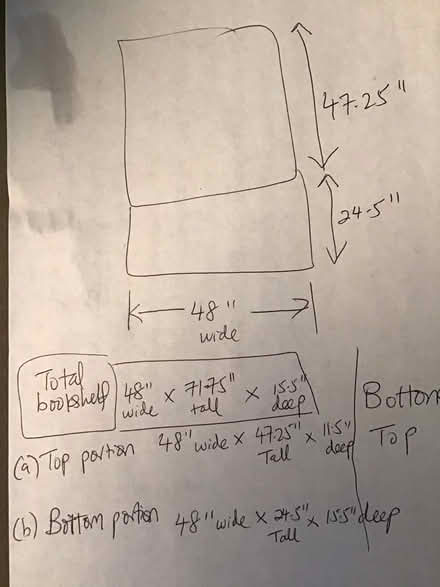 47.25"
24.5"
48"
wide
Total bookshelf 48" wide x 71.75" tall x 15.5" deep
Bottom
(a) Top portion 48" wide x 47.25" Tall x 11.5" deep
Top
(b) Bottom portion 48" wide x 24.5" Tall x 15.5" deep